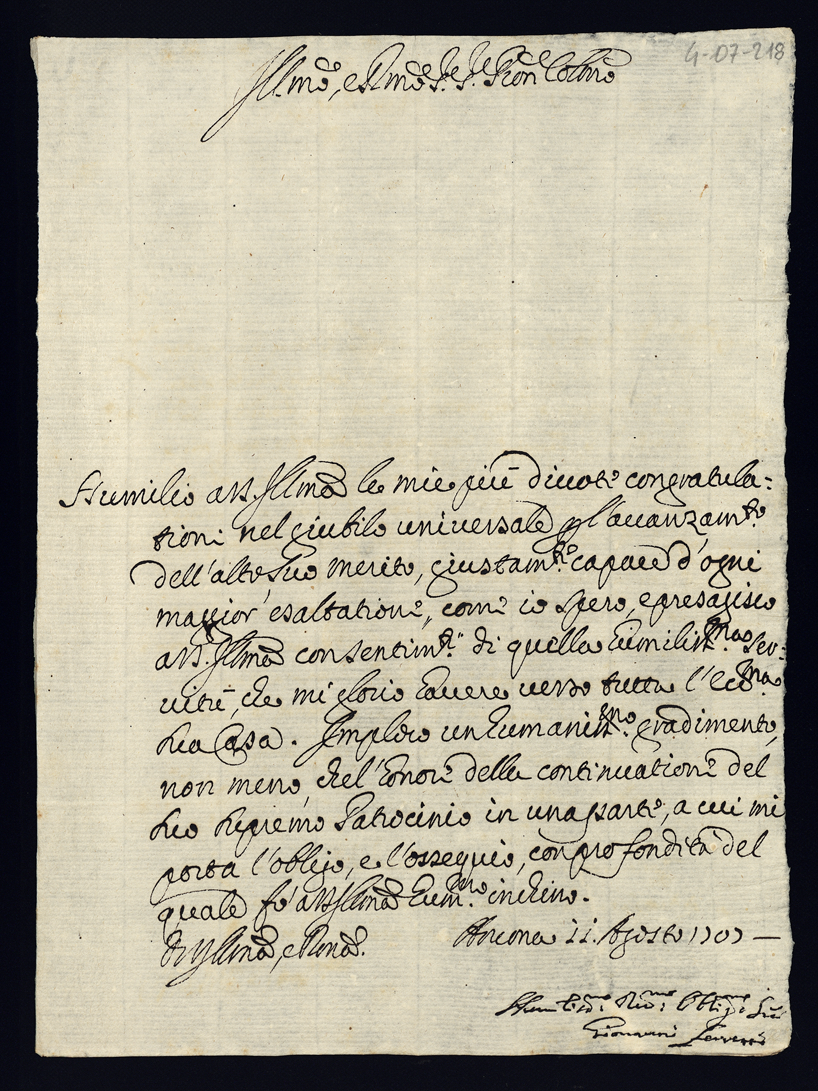 4-07-218
Ill.mo, e R.mo Sig.re Sig.re P.ron Col.mo
Humilio a V.S. Ill.ma le mie più divote congratula=
tioni nel giubilo universale p l'avanzam.to
dell'alto suo merito, giustam.te capace d'ogni
maggior esaltatione, come io spero, e presagisco
a V.S. Ill.ma consentim.to di quella humiliss.ma ser-
vitù, che mi glorio havere verso tutta l'Ecc.ma
sua Casa. Imploro un humaniss.mo gradimento,
non meno, che l'honore della continuatione del
suo supremo Patrocinio in una parte, a cui mi
porta l'obligo, e l'ossequio, con profondità del
quale fò a V.S. Ill.ma hum.mo inchino.
Di V.S. Ill.ma, e R.ma Ancona 11. Agosto 1707 —
Humiliss.mo Div.mo Oblig.mo Ser.
Giovanni